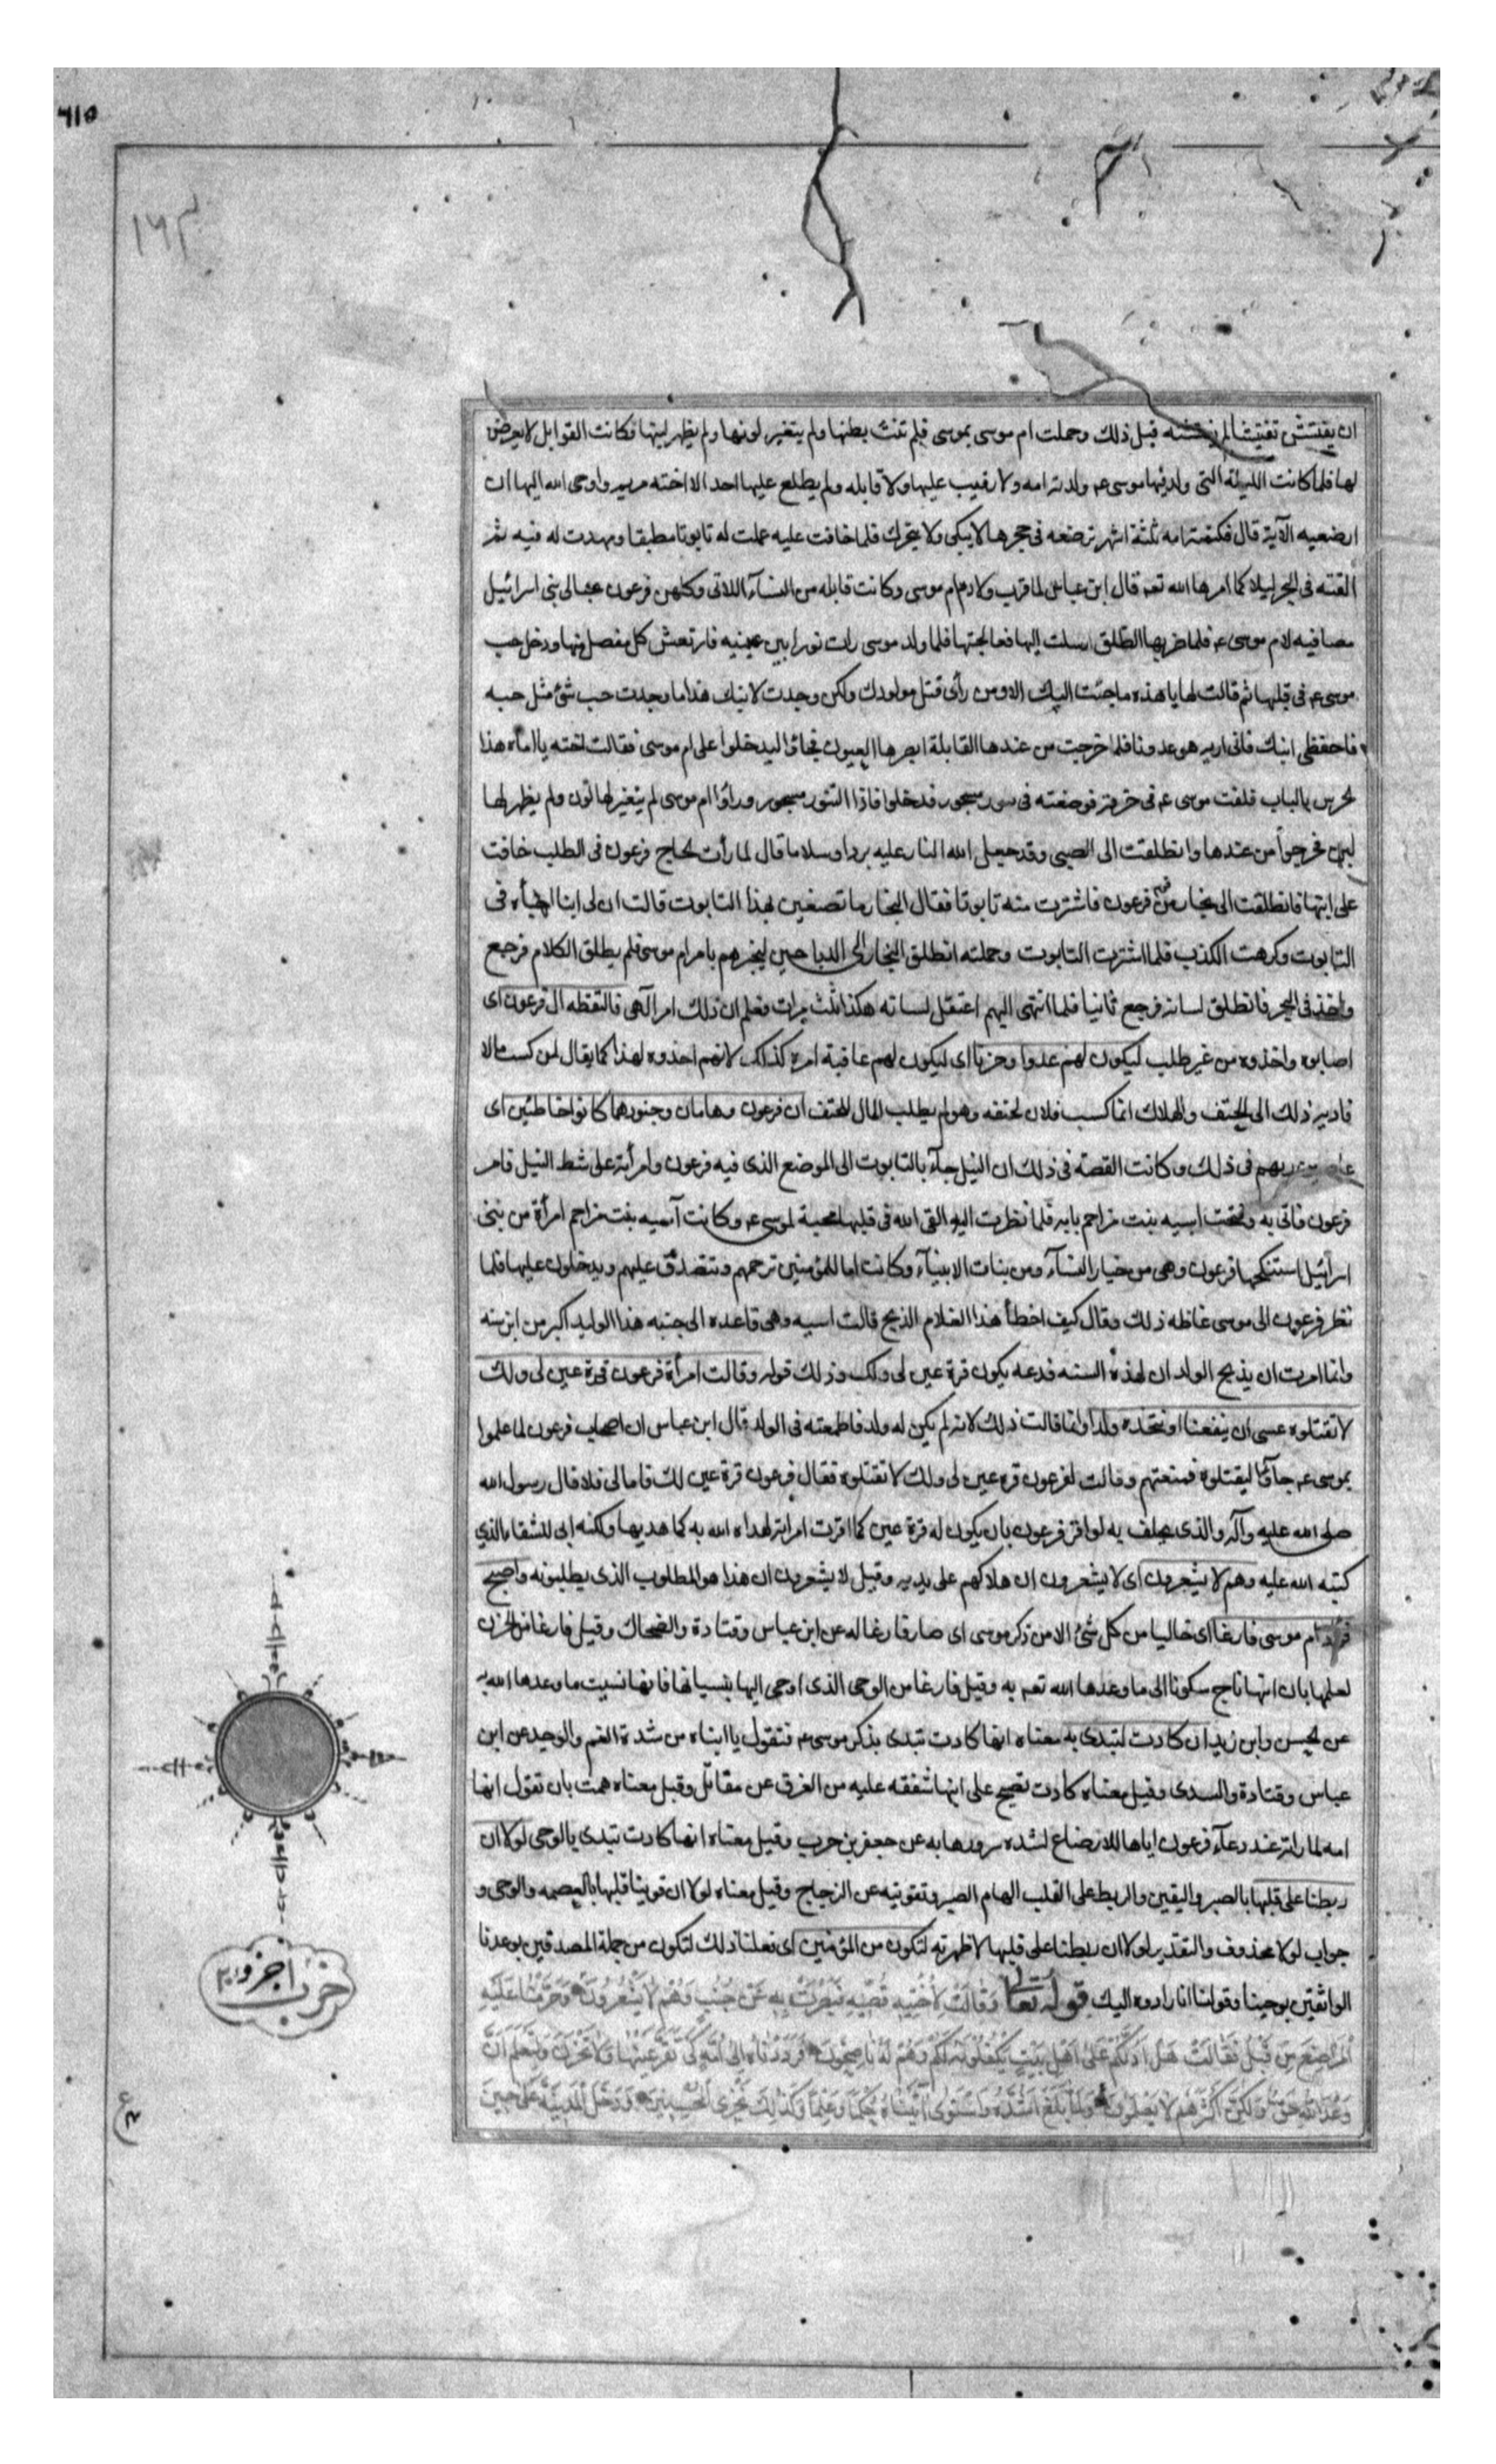 ٦١٥
١٦٣
ان يفتش تفتيشا لم يفتشه قبل ذلك وحملت ام موسى بموسى فلم تنث بطنها ولم يتغير لونها ولم يظهر لبنها فكانت القوابل لا يعرض
لها فلما كانت الليلة التى ولد فيها موسى عم ولدته امه ولا رقيب عليها ولا قابله ولم يطلع عليها احد الا اخته مريم واوحى الله اليها ان
ارضعيه الآية قال فكتمته امه ثلثة اشهر ترضعه فى حجرها لا يبكى ولا يتحرك فلما خافت عليه عملت له تابوتا مطبقا ومهدت له فيه ثم
القته فى البحر ليلا كما امرها الله تعم قال ابن عباس لما قرب ولاد ام موسى وكانت قابله من النسآء اللاتى وكلهن فرعون بحبالى بنى اسرائيل
مصافيه لام موسى عم فلما ضربها الطلق ارسلت اليها فعالجتها فلما ولد موسى رات نورا بين عينيه فارتعش كل مفصل منها ودخل حب
موسى عم فى قلبها ثم قالت لها يا هذه ما جئت اليك الا ومن رأى قتل مولودك ولكن وجدت لابنك هذا ما وجدت حب شئ مثل حبه
فاحفظى ابنك فانى اريه هو عدونا فلما خرجت من عندها القابلة ابصرها العيون فجاؤا ليدخلوا على ام موسى فقالت اخته يا اماه هذا
الحرس بالباب فلفت موسى عم فى خرقة فوضعته فى تنور مسجور فدخلوا فاذا التنور مسجور وراؤا ام موسى لم يتغير لها لون ولم يظهر لها
لبن فخرجوا من عندها وانطلقت الى الصبى وقد جعل الله النار عليه بردا وسلاما قال لما رأت الحاح فرعون فى الطلب خافت
على ابنها فانطلقت الى نجار من قوم فرعون فاشترت منه تابوتا فقال النجار ما تصنعين بهذا التابوت قالت ان لى ابنا اخبأه فى
التابوت وكرهت الكذب فلما اشترت التابوت وحملته انطلق النجار الى الذباحين ليخبرهم بامر ام موسى فلم يطلق الكلام فرجع
واخذ فى النجر فانطلق لسانه فرجع ثانيا فلما انتهى اليهم اعتقل لسانه هكذا ثلث مرات فعلم ان ذلك امر آلهى فالتقطه ال فرعون اى
اصابوه واخذوه من غير طلب ليكون لهم عدوا وحزنا اى ليكون لهم عاقبة امره كذلك لا انهم اخذوه لهذا كما يقال لمن كسب مالا
فاديه ذلك الى الحتف والهلاك انما كسب فلان لحتفه وهو لم يطلب المال للحتف ان فرعون وهامان وجنودهما كانوا خاطئين اى
عاصين ربهم فى ذلك وكانت القصة فى ذلك ان النيل جآء بالتابوت الى الموضع الذى فيه فرعون وامرأته على شط النيل فامر
فرعون فاتى به وفتحت اسيه بنت مزاحم بابه فلما نظرت اليه القى الله فى قلبها محبة لموسى عم وكانت آسيه بنت مزاحم امرأة من بنى
اسرائيل استنكحها فرعون وهى من خيار النسآء ومن بنات الانبيآء وكانت اما للمؤمنين ترحمهم وتتصدق عليهم ويدخلون عليها فلما
نظر فرعون الى موسى غاظه ذلك وقال كيف اخطأ هذا الغلام الذبح قالت اسيه وهى قاعده الى جنبه هذا الوليد اكبر من ابن سنه
وانما امرت ان يذبح الولدان لهذه السنه فدعه يكون قرة عين لى ولك وذلك قوله وقالت امرأة فرعون قرة عين لى ولك
لا تقتلوه عسى ان ينفعنا او نتخذه ولدا وانما قالت ذلك لانه لم يكن له ولد فاطمعته فى الولد قال ابن عباس ان اصحاب فرعون لما علموا
بموسى عم جاؤا ليقتلوه فمنعتهم وقالت لفرعون قره عين لى ولك لا تقتلوه فقال فرعون قرة عين لك فاما لى فلا قال رسول الله
صلى الله عليه وآله والذى يحلف به لو اقر فرعون بان يكون له قرة عين كما اقرت امرأته لهداه الله به كما هديها ولكنه ابى للشقاء الذي
كتبه الله عليه وهم لا يشعرون اى لا يشعرون ان هلاكهم على يديه وقيل لا يشعرون ان هذا هو المطلوب الذى يطلبونه واصبح
فؤاد ام موسى فارغا اى خاليا من كل شئ الا من ذكر موسى اى صار فارغا له عن ابن عباس وقتادة والضحاك وقيل فارغا من الحزن
لعلمها بان ابنها ناج سكونا الى ما وعدها الله تعم به وقيل فارغا من الوحى الذى اوحى اليها بنسيانها فانها نسيت ما وعدها الله به
عن الحسن وابن زيد ان كادت لتبدى به معناه انها كادت تبدى بذكر موسى عم فتقول يا ابناه من شدة الغم والوجد عن ابن
عباس وقتادة والسدى وقيل معناه كادت تصيح على ابنها شفقه عليه من الغرق عن مقاتل وقيل معناه همت بان تقول انها
امه لما راته عند دعآء فرعون اياها للارضاع لشده سرورها به عن جعفر بن حرب وقيل معناه انها كادت تبدى بالوحى لولا ان
ربطنا على قلبها بالصبر واليقين والربط على القلب الهام الصبر وتقويته عن الزجاج وقيل معناه لولا ان قوينا قلبها بالعصمه والوحى و
جواب لولا محذوف والتقدير لولا ان ربطنا على قلبها لاظهرته لتكون من المؤمنين اى فعلنا ذلك لتكون من جملة المصدقين بوعدنا
الواثقين بوحينا وقولنا انا رادوه اليك قوله تعالى وَقَالَتْ لِأُخْتِهِ قُصِّيهِ فَبَصُرَتْ بِهِ عَنْ جُنُبٍ وَهُمْ لَا يَشْعُرُونَ وَحَرَّمْنَا عَلَيْهِ
الْمَرَاضِعَ مِنْ قَبْلُ فَقَالَتْ هَلْ اَدُلُّكُمْ عَلَى اَهْلِ بَيْتٍ يَكْفُلُونَهُ لَكُمْ وَهُمْ لَهُ نَاصِحُونَ فَرَدَدْنَاهُ اِلَى اُمِّهِ كَىْ تَقَرَّ عَيْنُهَا وَلَا تَحْزَنَ وَلِتَعْلَمَ اَنَّ
وَعْدَ اللّٰهِ حَقٌّ وَلٰكِنَّ اَكْثَرَهُمْ لَا يَعْلَمُونَ وَلَمَّا بَلَغَ اَشُدَّهُ وَاسْتَوٰى اٰتَيْنَاهُ حُكْمًا وَعِلْمًا وَكَذٰلِكَ نَجْزِى الْمُحْسِنِينَ وَدَخَلَ الْمَدِينَةَ عَلٰى حِينِ
حزب